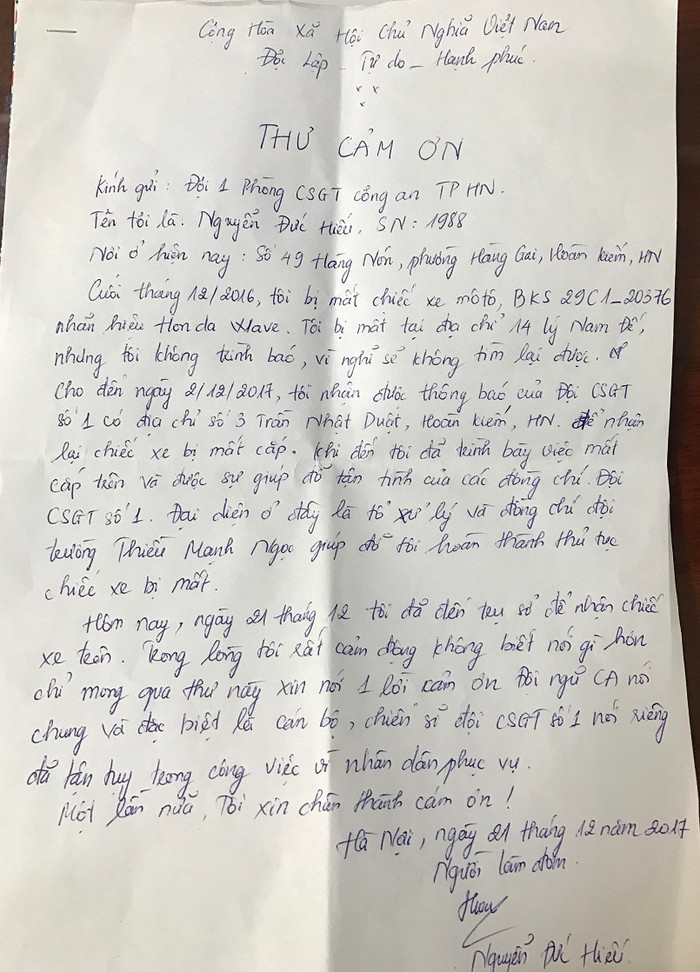 Cộng Hòa Xã Hội Chủ Nghĩa Việt Nam
Độc Lập _ Tự do _ Hạnh phúc.
THƯ CẢM ƠN
Kính gửi : Đội 1 Phòng CSGT công an TP HN.
Tên tôi là : Nguyễn Đức Hiếu, SN : 1988
Nơi ở hiện nay : Số 49 Hàng Nón, phường Hàng Gai, Hoàn kiếm, HN
Cuối tháng 12/2016, tôi bị mất chiếc xe môtô, BKS 29C1_20376
nhãn hiệu Honda Wave. Tôi bị mất tại địa chỉ 14 lý Nam Đế,
nhưng tôi không trình báo, vì nghĩ sẽ không tìm lại được.
Cho đến ngày 2/12/2017, tôi nhận được thông báo của Đội CSGT
số 1 có địa chỉ số 3 Trần Nhật Duật, Hoàn kiếm, HN. để nhận
lại chiếc xe bị mất cắp. Khi đến tôi đã trình bày việc mất
cắp trên và được sự giúp đỡ tận tình của các đồng chí Đội
CSGT số 1. Đại diện ở đây là tổ xử lý và đồng chí đội
trưởng Thiều Mạnh Ngọc giúp đỡ tôi hoàn thành thủ tục
chiếc xe bị mất.
Hôm nay, ngày 21 tháng 12 tôi đã đến trụ sở để nhận chiếc
xe trên. Trong lòng tôi rất cảm động không biết nói gì hơn
chỉ mong qua thư này xin nói 1 lời cảm ơn Đội ngũ CA nói
chung và đặc biệt là cán bộ, chiến sĩ đội CSGT số 1 nói riêng
đã tận tụy trong công việc vì nhân dân phục vụ.
Một lần nữa, Tôi xin chân thành cám ơn !
Hà Nội, ngày 21 tháng 12 năm 2017
Người làm đơn.
Nguyễn Đức Hiếu.